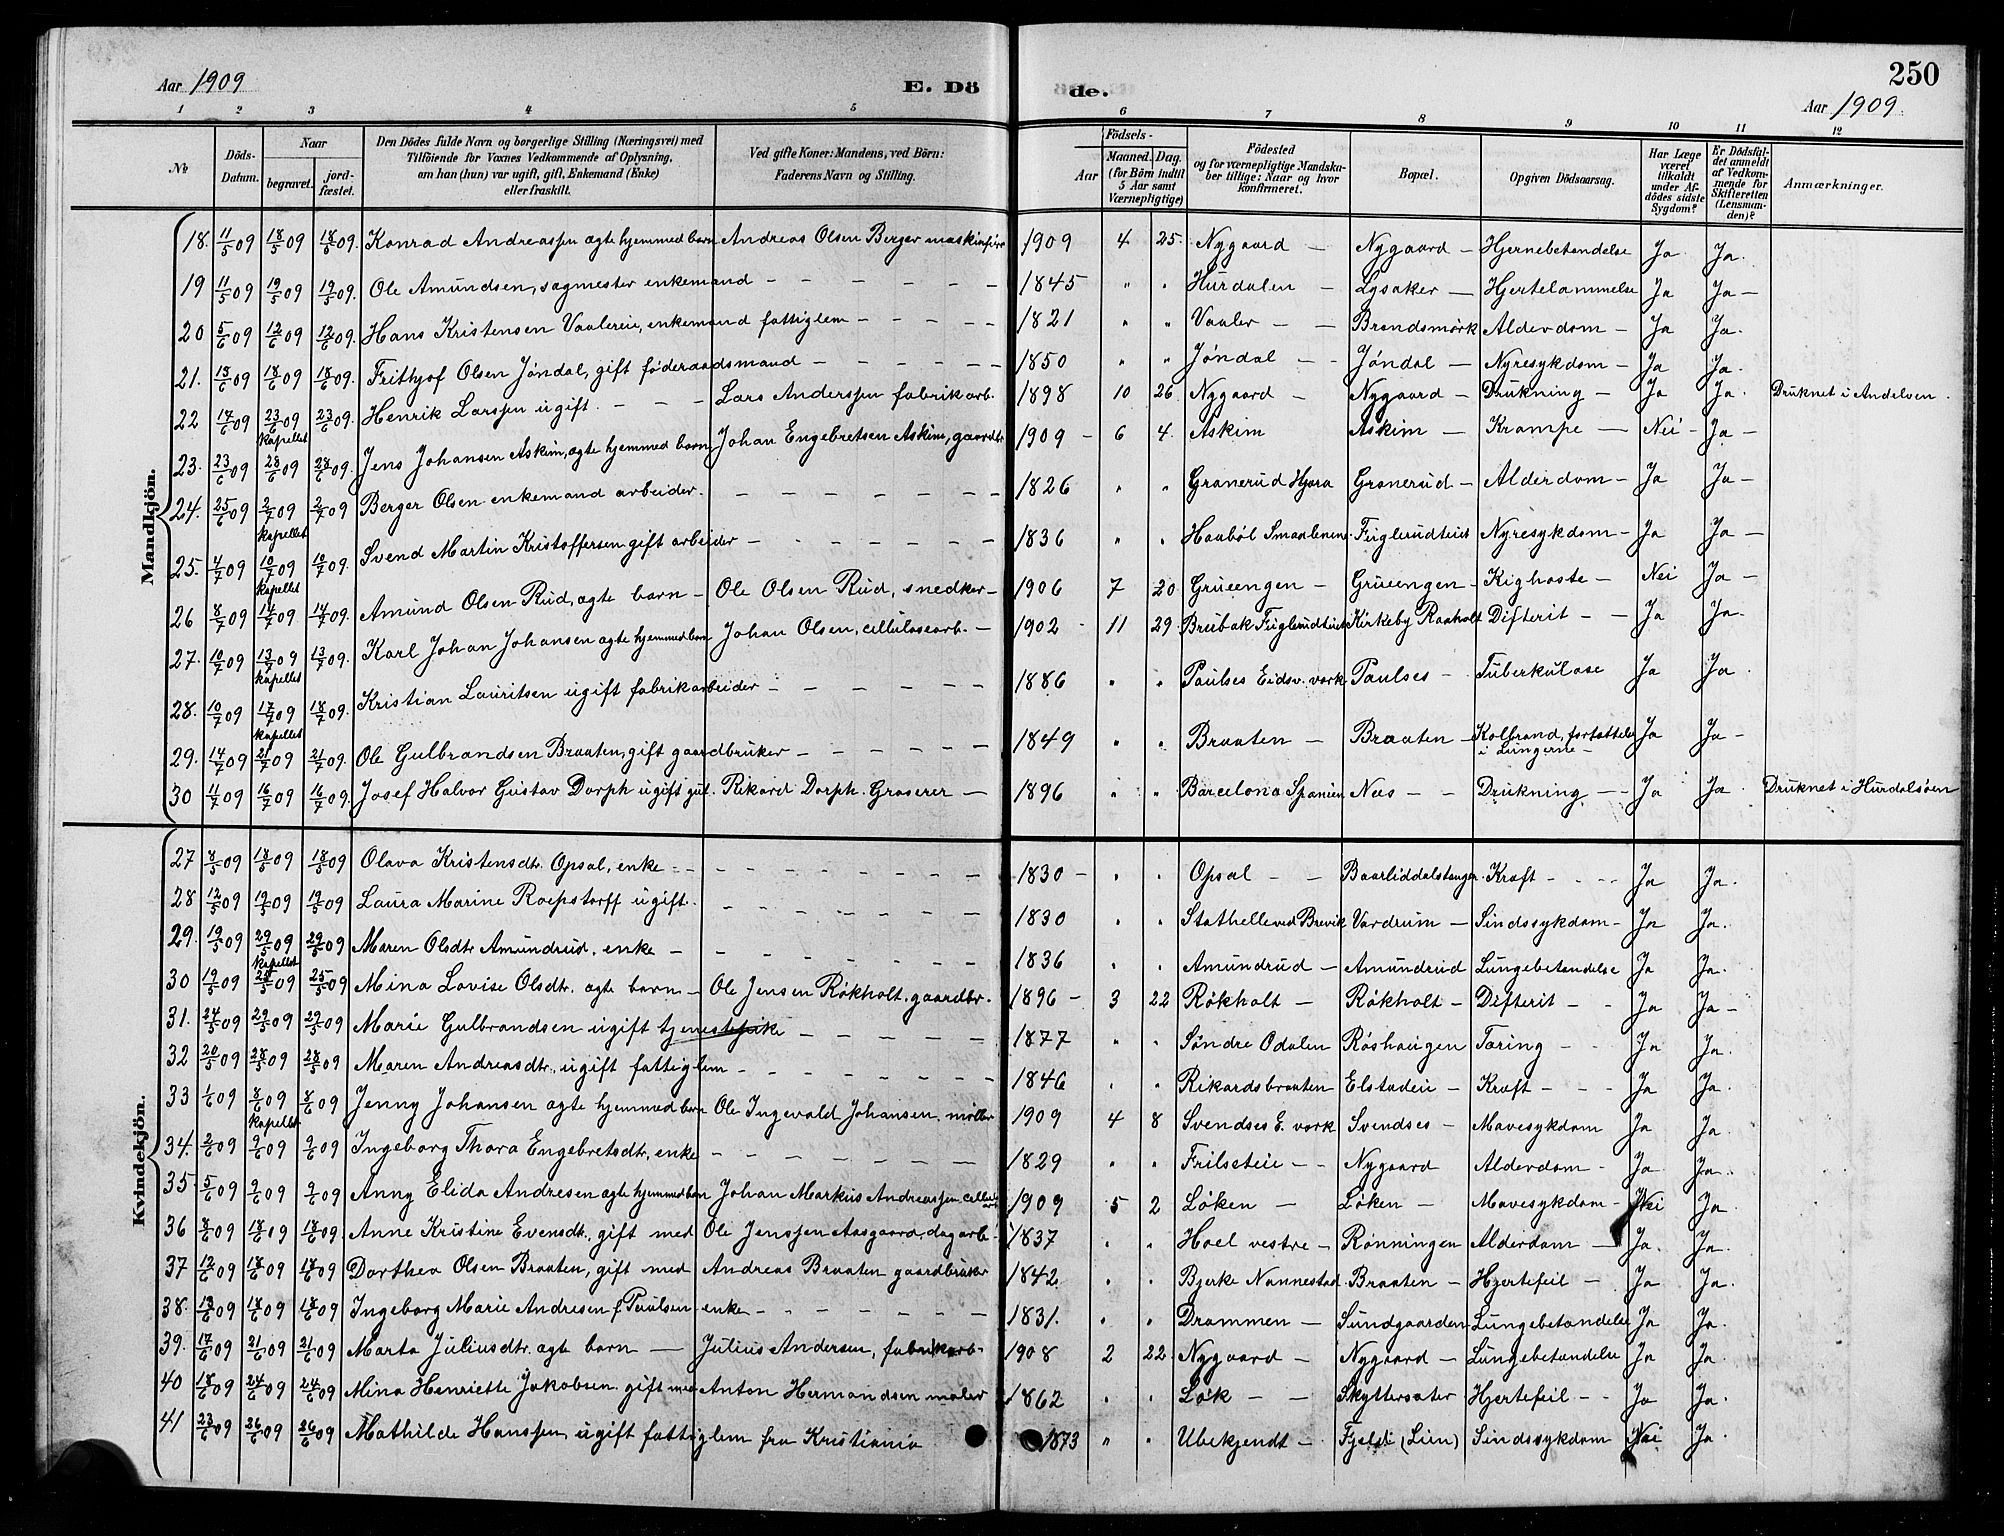 Aar 1909 E. Dö de. 250
Aar 1909.
1 2 3 4 5 6 7 8 9 10 11 12
Nr
Döds-Datum.
Naar begravet. jordfæstet.
Den Dödes fulde Navn og borgerlige Stilling (Næringsvei) med
Tilföiende for Voxnes Vedkommende af Oplysning,
om han (hun) var ugift, gift, Enkemand (Enke)
eller fraskilt.
Ved gifte Koner: Mandens, ved Börn:
Faderens Navn og Stilling.
Födsels-
Aar Maaned. Dag.
(for Börn indtil 5 Aar samt Værnepligtige)
Födested
og for værnepligtige Mandskaber tillige: Naar og hvor konfirmeret.
Bopæl.
Opgiven Dödsaarsag.
Har Læge været tilkaldt under Afdödes sidste Sygdom?
Er Dödsfaldet anmeldt af Vedkommende for Skifteretten (Lensmanden)?
Anmærkninger.
Mandkjön.
18. 11/5 09 18/5 09 18/5 09. Konrad Andreassen ægte hjemmed barn Andreas Olsen Berger maskinfører 1909 4 25. Nygaard – Nygaard – Hjernebetændelse Ja Ja.
19 11/5 09 19/5 09 19/5 09. Ole Amundsen, sagmester enkemand – – – – – 1845 " " Hurdalen – Lysaker – Hjertelammelse Ja Ja –
20 5/6 09 12/6 09 12/6 09. Hans Kristensen Vaalereie, enkemand fattiglem – – – – 1821 " " Vaaler – – Brandsmörk Alderdom – Ja Ja.
21. 13/6 09 18/6 09 18/6 09. Frithjof Olsen Jøndal, gift føderaadsmand – – – – 1850 " " Jøndal – – Jøndal – Nyresykdom – Ja Ja.
22 17/6 09 23/6 09 23/6 09. Henrik Larssen ugift. – – – Lars Anderssen fabrikarb. 1898 10 26. Nygaard – Nygaard – Drukning – Ja Ja. Druknet i Andelven.
kapellet
23. 23/6 09 28/6 09 28/6 09. Jens Johansen Askim, ægte hjemmed barn Johan Engebretsen Askim, gaardbr 1909 – 6 4. Askim Askim – Krampe – Nei – Ja –
24. 25/6 09 2/7 09 2/7 09 Berger Olsen enkemand arbeider. – – – – – – 1826 " " Granerud Hjora Granerud – Alderdom – Ja Ja –
kapellet
25. 4/7 09 10/7 09 10/7 09. Svend Martin Kristoffersen gift arbeider – – – – – – 1836 " " Haabøl Smaalenene Fuglerudteiet Nyresykdom – Ja Ja –
kapellet
26 8/7 09 14/7 09 14/7 09. Amund Olsen Rud, ægte barn – Ole Olsen Rud, snedker – 1906 7 20 Grueengen – Grueengen – Kighoste – Nei Ja –
27. 10/7 09 13/7 09 13/7 09. Karl Johan Johansen ægte hjemmed barn Johan Olsen, cellulosearb. – 1902 – 11 29. Brubak Fuglerudteiet Kirkeby Raaholt Difterit – – Ja Ja.
kapellet
28. 10/7 09 17/7 09 18/7 09. Kristian Lauritsen ugift fabrikarbeider – – – – – – 1886 " " Paulses Eidsv. verk Paulses – Tuberkulose Ja Ja.
kapellet
29. 14/7 09 21/7 09 21/7 09. Ole Gulbrandsen Braaten, gift gaardbruker – – – – – 1849 " " Braaten – Braaten – Kolbrand, fortættelse i Lungerne – Ja Ja –
30 11/7 09 16/7 09 16/7 09. Josef Halvor Gustav Dorph ugift gut. Rikard Dorph. Grosserer – 1896 " " Barcelona Spanien Næs – – Drukning – – Ja Ja. Druknet i Hurdalsøen
Kvindekjön.
27 8/5 09 18/5 09 18/5 09 Olava Kristensdtr. Opsal, enke – – – – – – – – 1830 – " " Opsal – – Baarliddalstangen Kræft – – – Ja Ja.
28 12/5 09 19/5 09 19/5 09 Laura Marine Raepstorff ugift. – – – – – – – 1830 " " Stathelle ved Brevik Vardrum – Sindssykdom – Ja Ja.
29. 19/5 09 29/5 09 29/5 09 Maren Olsdtr Amundrud, enke – – – – – – – – 1836 " " Amundrud – Amundrud Lungebetændelse Ja Ja.
kapellet
30 19/5 09 25/5 09 25/5 09 Mina Lovise Olsdtr. ægte barn – Ole Jensen Røkholt, gaardbr. 1896 – 3 22 Røkholt – Røkholt – Difterit – – Ja Ja –
31. 24/5 09 29/5 09 29/5 09 Marie Gulbrandsen ugift tjenestepike – – – – 1877 " " Søndre Odalen Røshaugen Tæring – – Ja Ja.
32 20/5 09 28/5 09 28/5 09 Maren Andreasdtr., ugift fattiglem – – – – – – – 1846 " " Rikardsbraaten Elstadeie – Kræft – – – Ja Ja.
33 1/6 09 8/6 09 8/6 09 Jenny Johansen ægte hjemmed barn Ole Ingevald Johansen. møller 1909 4 8 Svendses E. verk Svendses – Mavesykdom Ja Ja.
kapellet
34. 2/6 09 9/6 09 9/6 09 Ingeborg Thora Engebretsdtr, enke – – – – – – – 1829 " " Frilsteie – – Nygaard Alderdom – Ja Ja.
35– 5/6 09 9/6 09 9/6 09 Anny Elida Andresen ægte hjemmed barn Johan Markus Andreassen 1909 5 2 Løken – Løken – Mavesykdom – Nei Ja.
36 8/6 09 18/6 09 18/6 09 Anne Kristine Evensdtr., gift med Ole Jenssen Aasgaard, dagarb. 1837 " " Hoel vestre – Rønningen Alderdom – Ja. Ja.
37 12/6 09 18/6 09 18/6 09 Dorthea Olsen Braaten, gift med Andreas Braaten gaardbruker 1842 " " Bjerke Nannestad Braaten – Hjertefeil – Ja Ja.
38. 13/6 09 18/6 09 18/6 09 Ingeborg Marie Andresen f. Paulsen enke – – – – – – 1831. " " Drammen – Sundgaarden Lungebetændelse Ja Ja.
39. 17/6 09 21/6 09 21/6 09 Marta Juliusdtr. ægte barn – Julius Andersen, fabrikarb. 1908 2 22. Nygaard – Nygaard – Lungebetændelse Ja Ja.
40 18/6 09 24/6 09 24/6 09 Mina Henriette Jakobsen gift med Anton Hermandsen maler 1862 " " Løk – – Skyttersæter Hjertefeil – – Ja Ja.
41 23/6 09 26/6 09 26/6 09 Mathilde Hanssen, ugift fattiglem fra Kristiania 1873 " " Ubekjendt – Fjeldt (Lien) Sindssykdom Nei Ja.